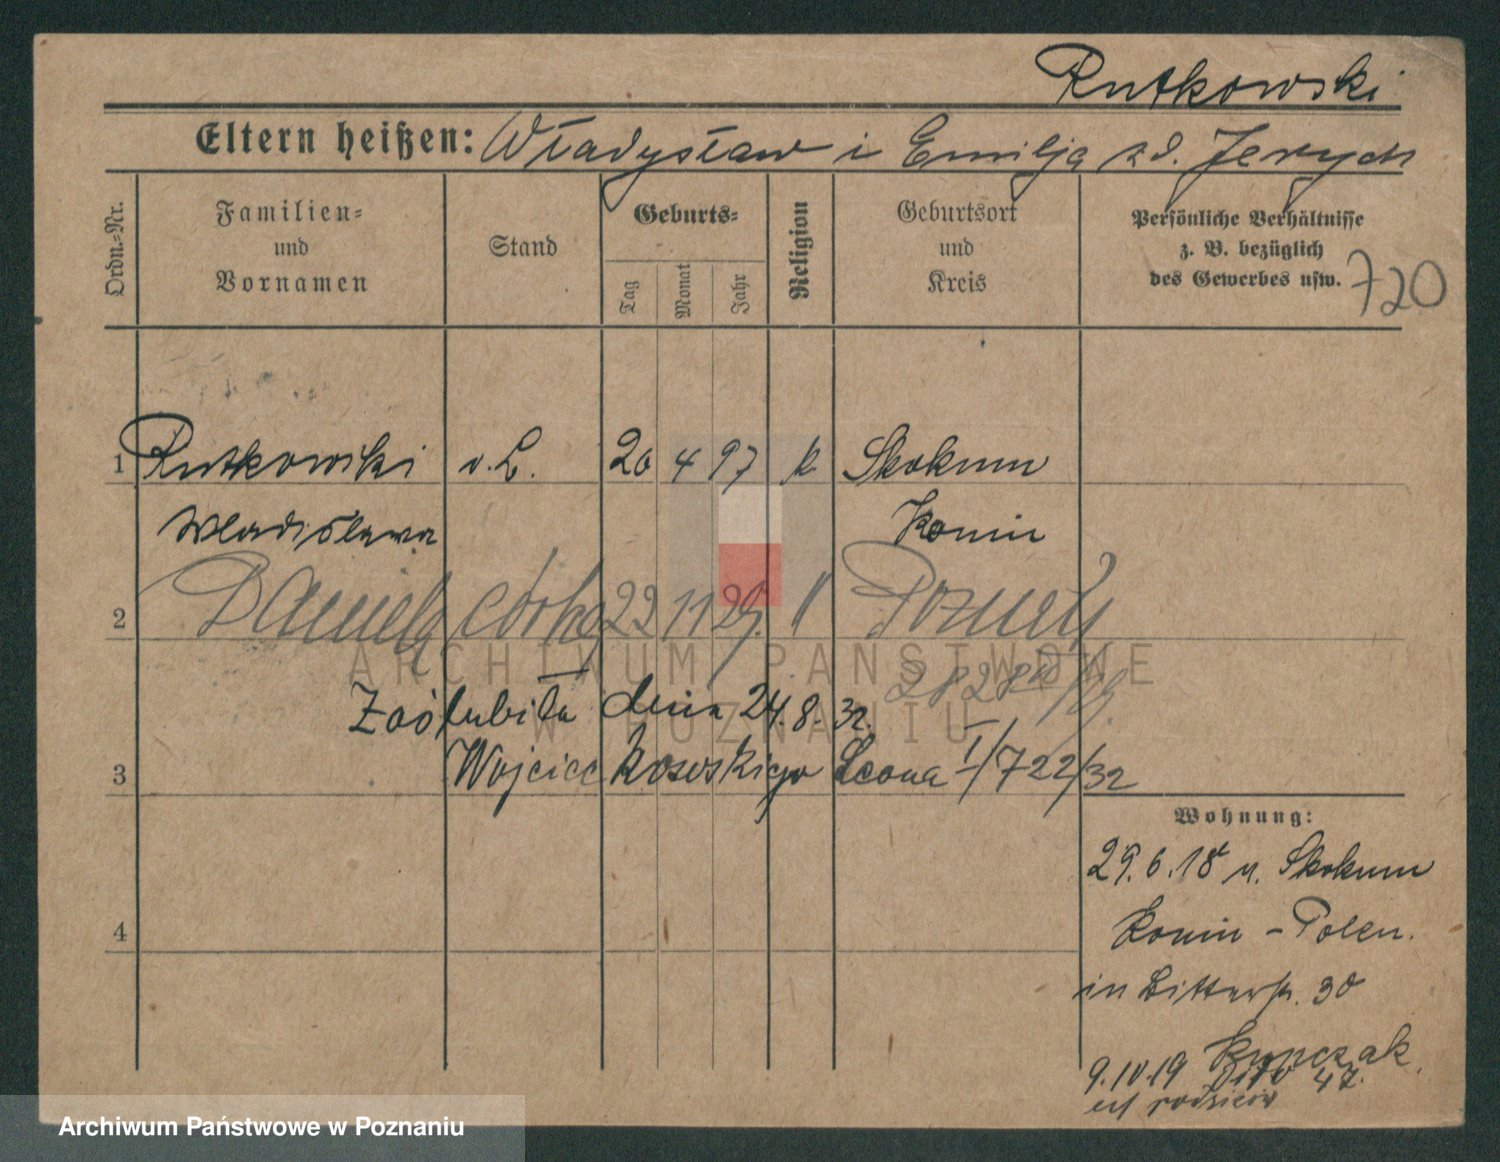 Rutkowski
Eltern heißen: Władysław i Emilja zd. Jerych
Ordn.=Nr.
Familien=
und
Vornamen
Stand
Geburts=
Tag
Monat
Jahr
Religion
Geburtsort
und
Kreis
Persönliche Verhältnisse
z. B. bezüglich
des Gewerbes usw.
720
1 Rutkowski v. L. 20 4 97 k Skokum
Wladislawa Konin
2 Daniela córka 22 11 29 k Poznań
ARCHIWUM PAŃSTWOWE
W POZNANIU
Zaślubiła dnia 24.8.32.
3 Wojciec Kososkiego Leona I/722/32
Wohnung:
29.6.18 v. Skokum
Konin - Polen.
in Bitterstr. 30
4
Kupczak
9.10.19 dito 47.
rodziców
Archiwum Państwowe w Poznaniu